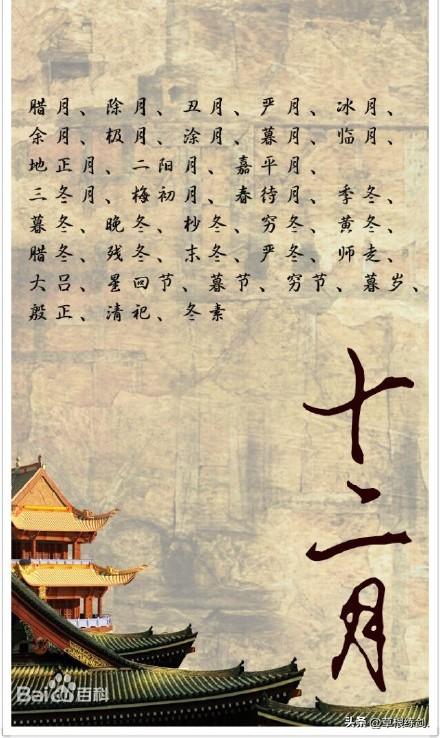 腊月、除月、丑月、严月、冰月、
余月、极月、涂月、暮月、临月、
地正月、二阳月、嘉平月、
三冬月、梅初月、春待月、季冬、
暮冬、晚冬、杪冬、穷冬、黄冬、
腊冬、残冬、末冬、严冬、师走、
大吕、星回节、暮节、穷节、暮岁、
殷正、清祀、冬素
十二月
Bai百科
头条@草根缘剑